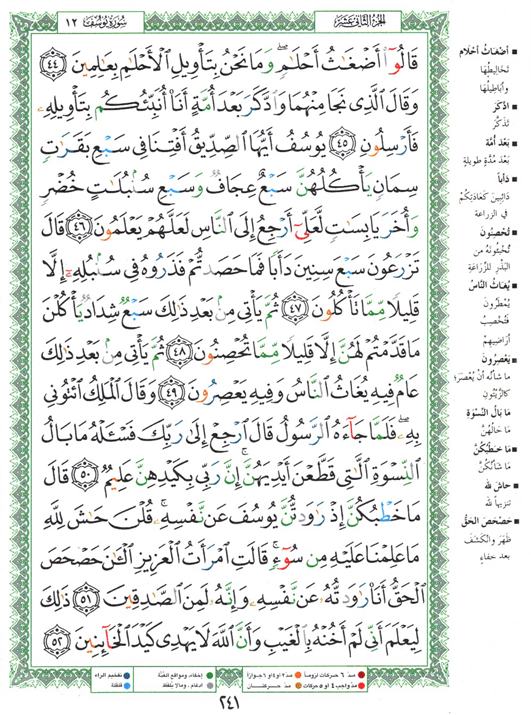 الجزء الثاني عشر
سورة يوسف ١٢
قَالُوٓا۟ أَضْغَٰثُ أَحْلَٰمٍ ۖ وَمَا نَحْنُ بِتَأْوِيلِ ٱلْأَحْلَٰمِ بِعَٰلِمِينَ ٤٤
وَقَالَ ٱلَّذِى نَجَا مِنْهُمَا وَٱدَّكَرَ بَعْدَ أُمَّةٍ أَنَا۠ أُنَبِّئُكُم بِتَأْوِيلِهِۦ
فَأَرْسِلُونِ ٤٥ يُوسُفُ أَيُّهَا ٱلصِّدِّيقُ أَفْتِنَا فِى سَبْعِ بَقَرَٰتٍ
سِمَانٍ يَأْكُلُهُنَّ سَبْعٌ عِجَافٌ وَسَبْعِ سُنۢبُلَٰتٍ خُضْرٍ
وَأُخَرَ يَابِسَٰتٍ لَّعَلِّىٓ أَرْجِعُ إِلَى ٱلنَّاسِ لَعَلَّهُمْ يَعْلَمُونَ ٤٦ قَالَ
تَزْرَعُونَ سَبْعَ سِنِينَ دَأَبًا فَمَا حَصَدتُّمْ فَذَرُوهُ فِى سُنۢبُلِهِۦٓ إِلَّا
قَلِيلًا مِّمَّا تَأْكُلُونَ ٤٧ ثُمَّ يَأْتِى مِنۢ بَعْدِ ذَٰلِكَ سَبْعٌ شِدَادٌ يَأْكُلْنَ
مَا قَدَّمْتُمْ لَهُنَّ إِلَّا قَلِيلًا مِّمَّا تُحْصِنُونَ ٤٨ ثُمَّ يَأْتِى مِنۢ بَعْدِ ذَٰلِكَ
عَامٌ فِيهِ يُغَاثُ ٱلنَّاسُ وَفِيهِ يَعْصِرُونَ ٤٩ وَقَالَ ٱلْمَلِكُ ٱئْتُونِى
بِهِۦ ۖ فَلَمَّا جَآءَهُ ٱلرَّسُولُ قَالَ ٱرْجِعْ إِلَىٰ رَبِّكَ فَسْـَٔلْهُ مَا بَالُ
ٱلنِّسْوَةِ ٱلَّٰتِى قَطَّعْنَ أَيْدِيَهُنَّ ۚ إِنَّ رَبِّى بِكَيْدِهِنَّ عَلِيمٌ ٥٠ قَالَ
مَا خَطْبُكُنَّ إِذْ رَٰوَدتُّنَّ يُوسُفَ عَن نَّفْسِهِۦ ۚ قُلْنَ حَٰشَ لِلَّهِ
مَا عَلِمْنَا عَلَيْهِ مِن سُوٓءٍ ۚ قَالَتِ ٱمْرَأَتُ ٱلْعَزِيزِ ٱلْـَٰٔنَ حَصْحَصَ
ٱلْحَقُّ أَنَا۠ رَٰوَدتُّهُۥ عَن نَّفْسِهِۦ وَإِنَّهُۥ لَمِنَ ٱلصَّٰدِقِينَ ٥١ ذَٰلِكَ
لِيَعْلَمَ أَنِّى لَمْ أَخُنْهُ بِٱلْغَيْبِ وَأَنَّ ٱللَّهَ لَا يَهْدِى كَيْدَ ٱلْخَآئِنِينَ ٥٢
■ أضغاث أحلام
تخاليطها
وأباطيلها
■ ادّكر
تذكّر
■ بعد أمّة
بعد مدّة طويلة
■ دأبا
دائبين كعادتكم
في الزراعة
■ تحصنون
تخبئونه من
البذر للزراعة
■ يغاث الناس
يمطرون
فتخصب
أراضيهم
■ يعصرون
ما شأنه أن يعصر
كالزيتون
■ ما بال النسوة
ما حالهن
■ ما خطبكن
ما شأنكن
■ حاش لله
تنزيها لله
■ حصحص الحق
ظهر وانكشف
بعد خفاء
مدّ ٦ حركات لزوماً ● مدّ ٢ أو ٤ أو ٦ جوازاً
مدّ واجب ٤ أو ٥ حركات ● مدّ حركتان
إخفاء، ومواقع الغنّة
إدغام، وما لا يلفظ
تفخيم الراء
قلقلة
٢٤١